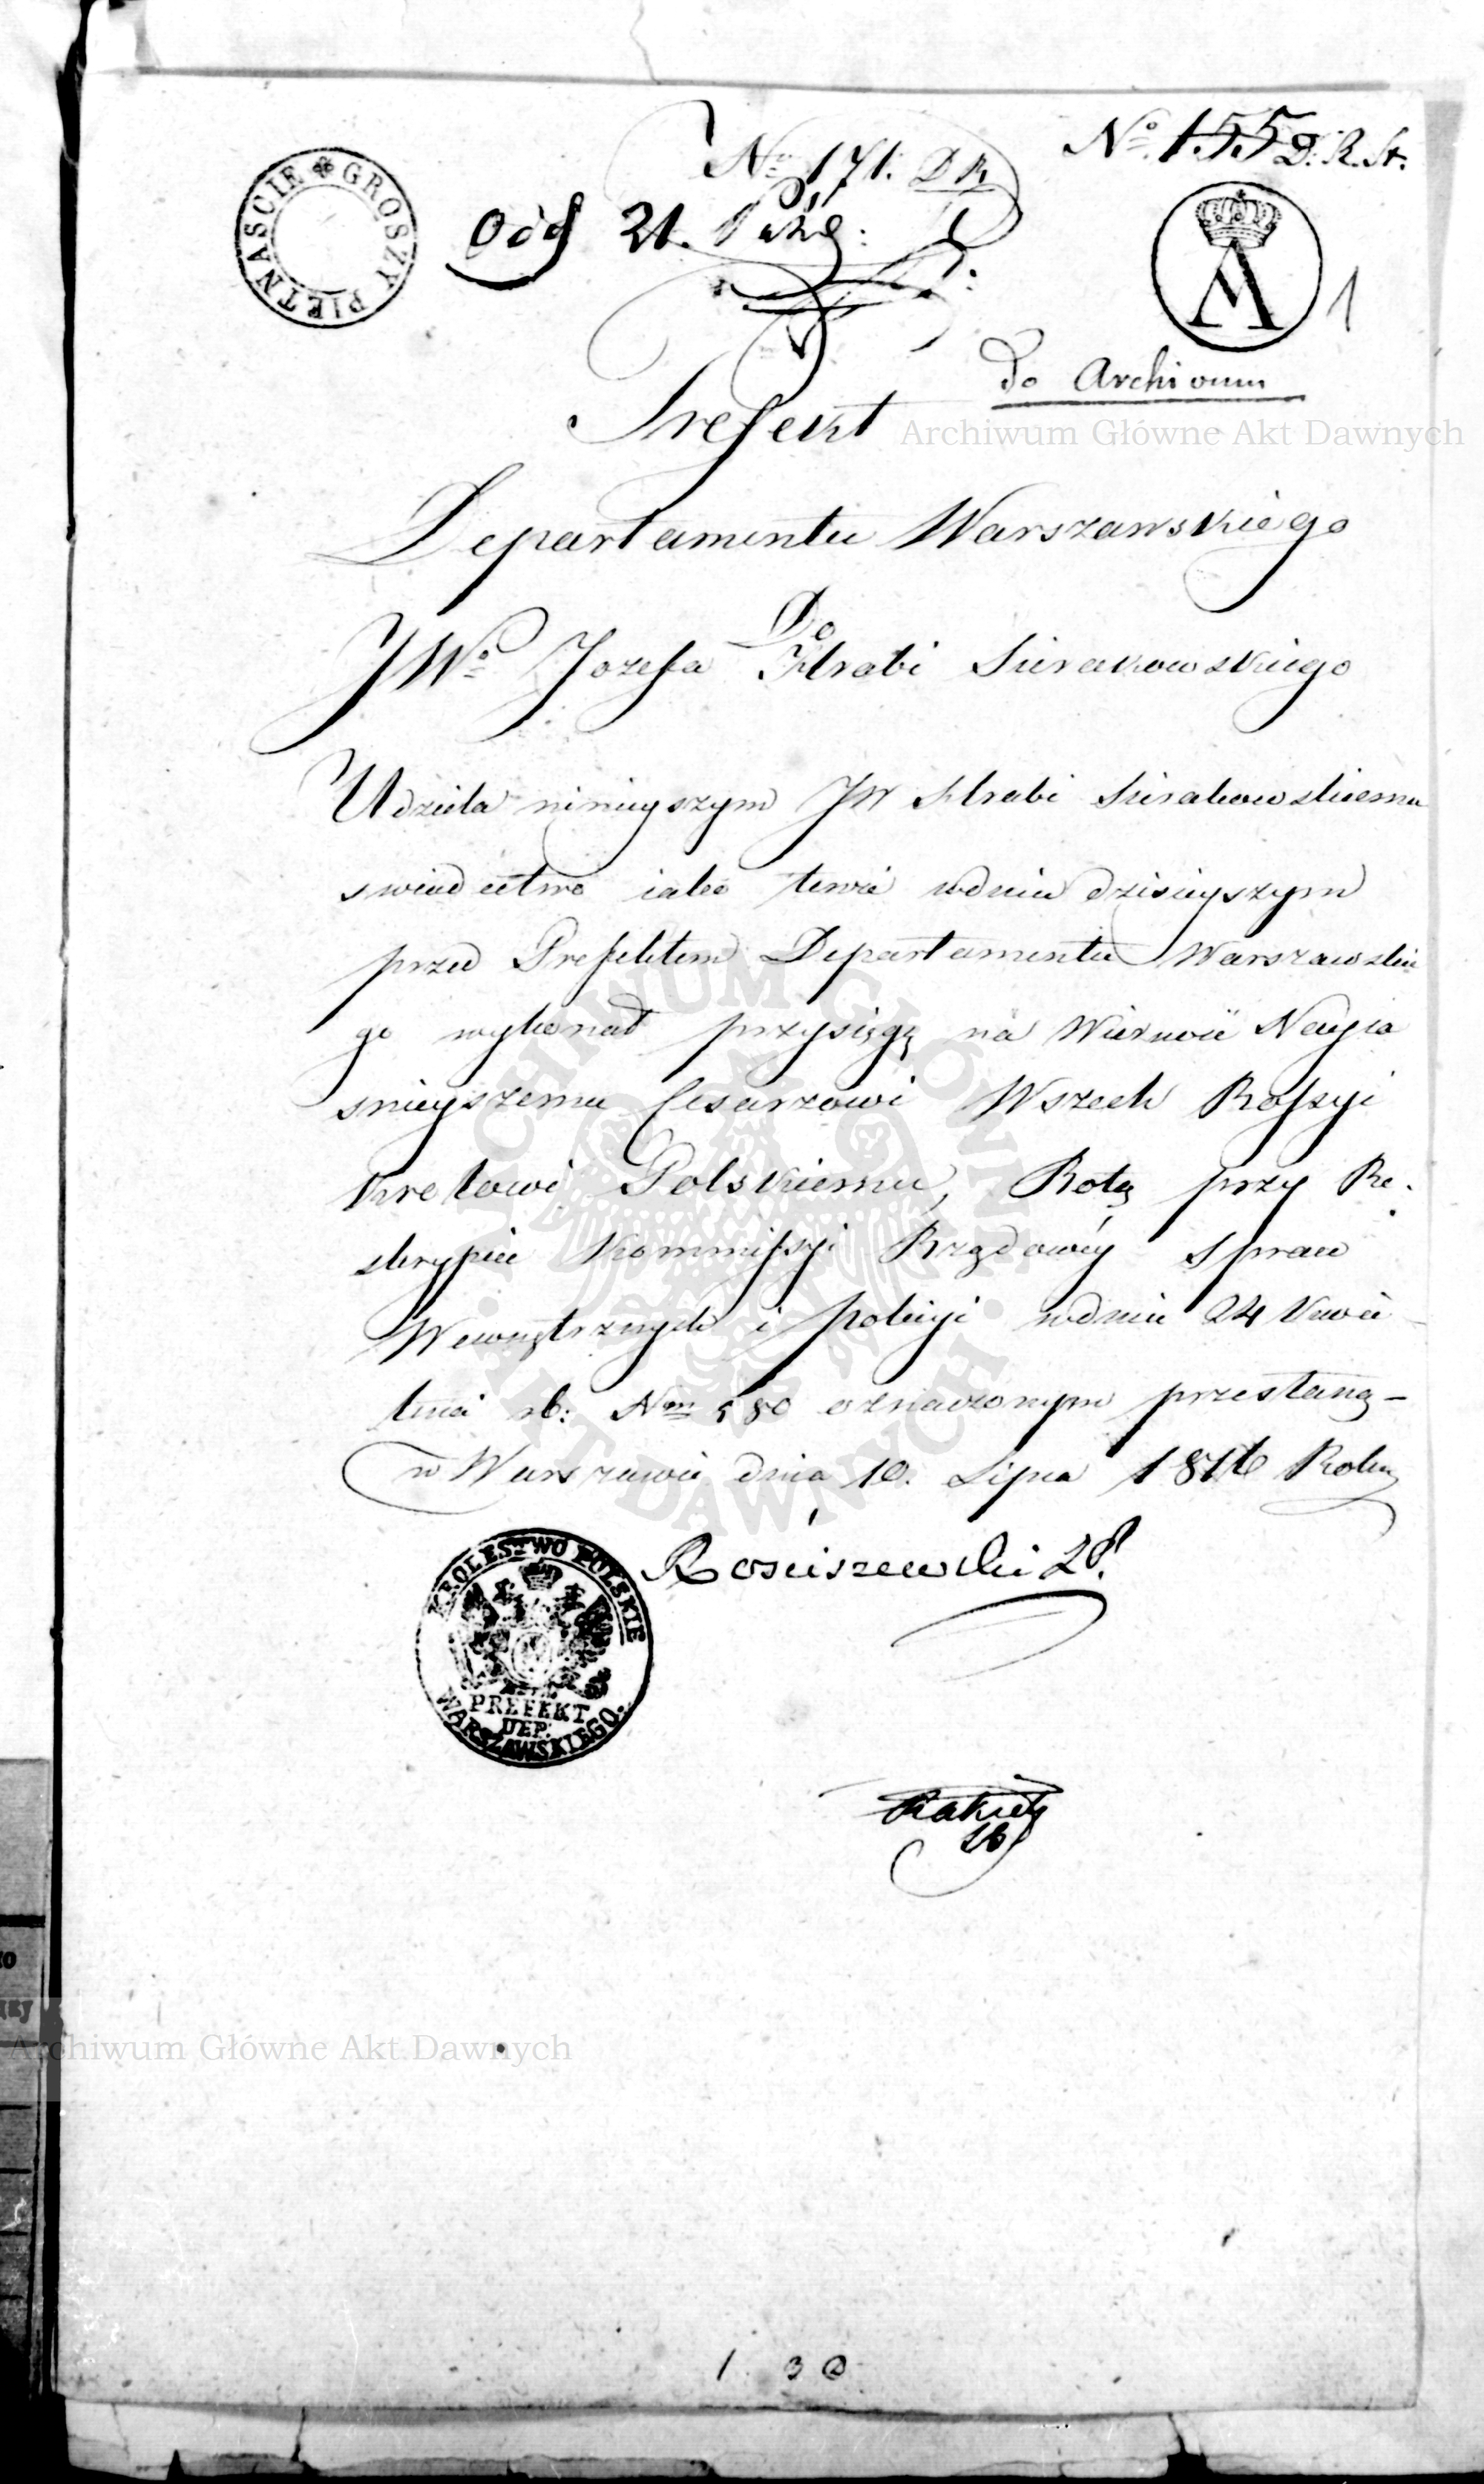 GROSZY PIĘTNASCIE
Nº 155 D. R. St.
Nº 171. D R
Odd 21. Paźd:
1
do Archivum
Prefekt
Archiwum Główne Akt Dawnych
Departamentu Warszawskiego
Do
JWº Jozefa Hrabi Sierakowskiego
Udziela nineyszym JW Hrabi Sierakowskiemu
swiadectwo iako tenże wdniu dzisieyszym
przed Prefektem Departamentu Warszawskie
go wykonał przysięgę na Wierność Nayia
snieyszemu Cesarzowi Wszech Rossyi
Krolowi Polskiemu, Rotą przy Re-
skrypcie Kommissyi Rządowéy Spraw
Wewnętrznych i policyi wdniu 24 Kwie
tnia rb: Nrm 580 oznaczonym przesłaną –
w Warszawie dnia 10. Lipca 1816 Roku
Rościszewski ZP.
KROLESTWO POLSKIE
PREFEKT
DEP.
WARSZAWSKIEGO.
ARCHIWUM GŁÓWNE AKT DAWNYCH
Archiwum Główne Akt Dawnych